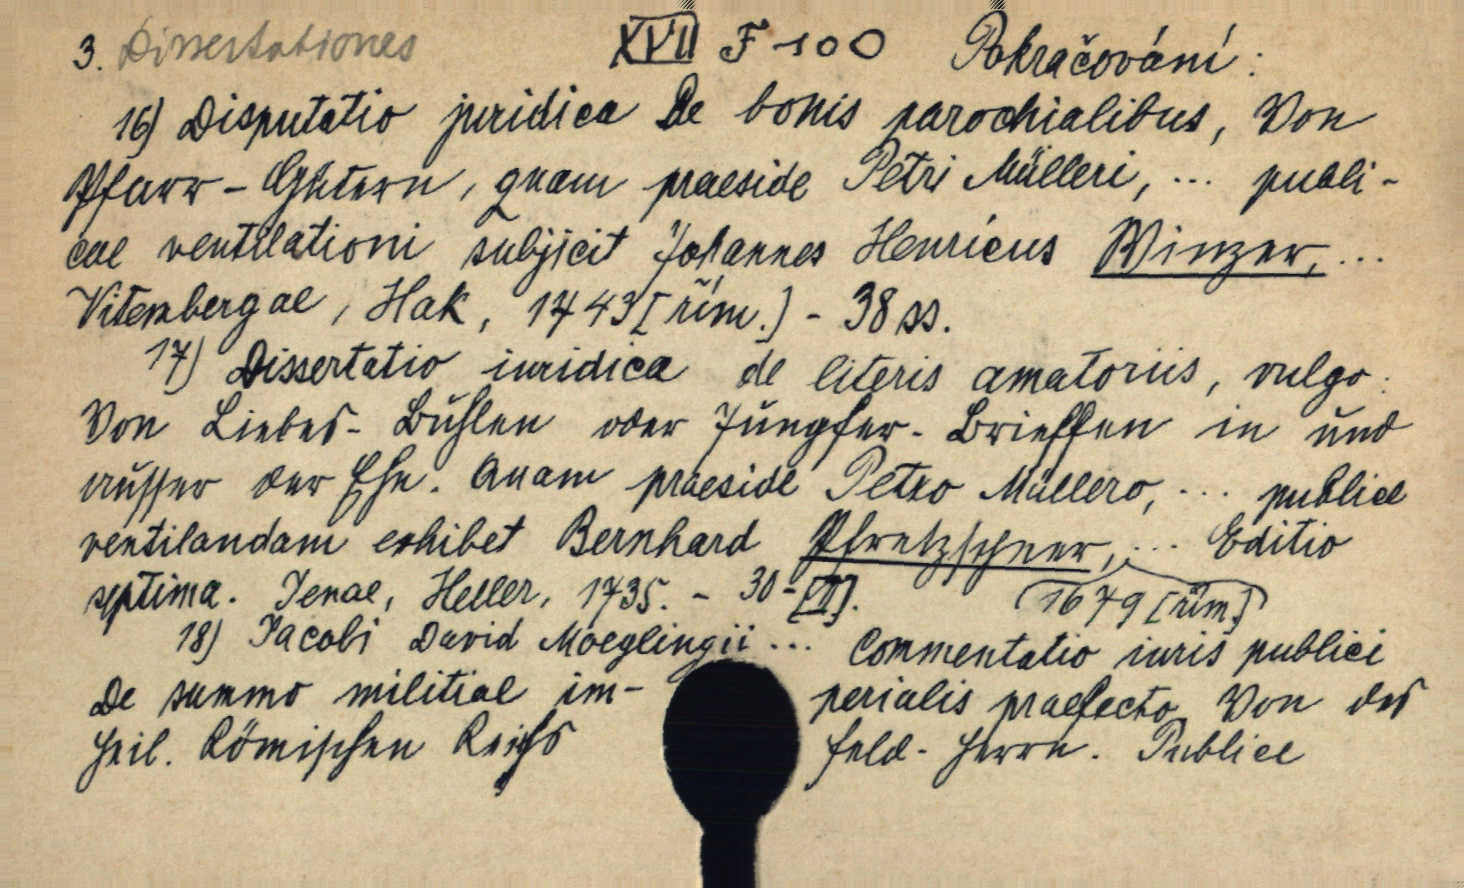 3. Dissertationes XVII F 100 Pokračování:
16) Disputatio juridica De bonis parochialibus, Von
Pfarr-Gütern, quam praeside Petri Mülleri, ... publi-
cae ventilationi subjicit Johannes Henricus Winzer, ...
Vitembergae, Hak, 1743 [řím.] - 38 ss.
17) Dissertatio iuridica de literis amatoriis, vulgo:
Von Liebes- Buhlen oder Jungfer- Brieffen in und
ausser der Ehe. Quam praeside Petro Müllero, ... publice
ventilandam exhibet Bernhard Pfretzschner, ... Editio
septima. Jenae, Heller, 1735. - 30-[II]. (1679 [řím.])
18) Jacobi David Moeglingii ... Commentatio iuris publici
De summo militiae im- perialis praefecto Von des
Heil. Römischen Reichs Feld- Herrn. Publice